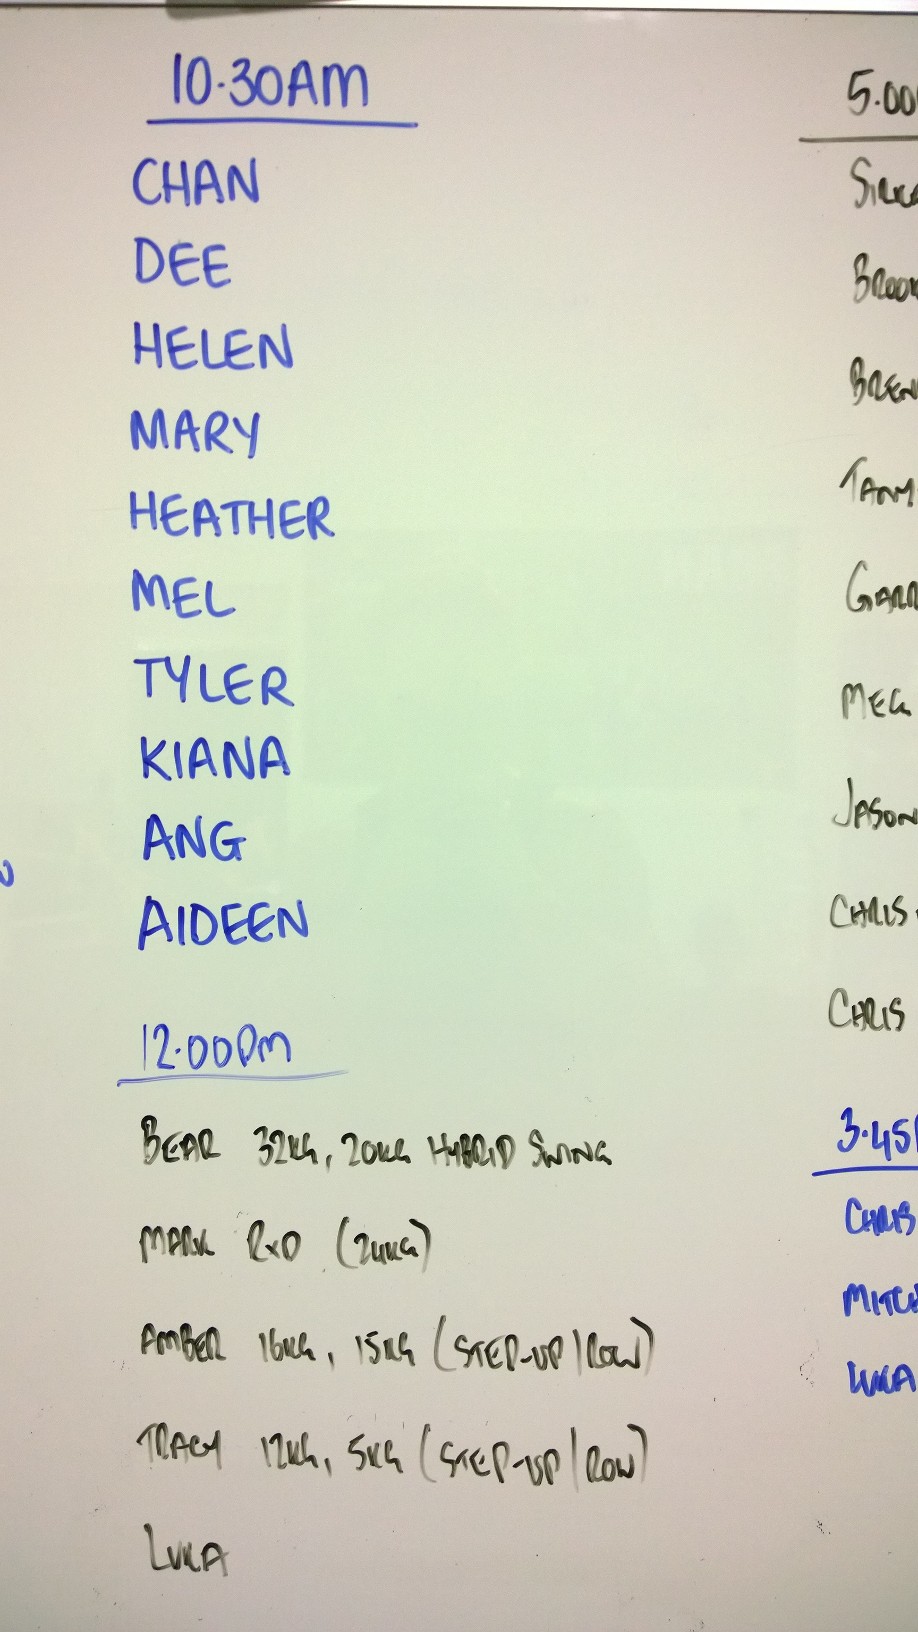 10.30AM
CHAN
DEE
HELEN
MARY
HEATHER
MEL
TYLER
KIANA
ANG
AIDEEN
12.00PM
BEAR 32KG, 20KG HYBRID SWING
MARK RxD (24KG)
AMBER 16KG, 15KG (STEP-UP/ROW)
TRACY 12KG, 5KG (STEP-UP/ROW)
LUKA
5.00
MEG
JASON
CHRIS
CHRIS
3.45
CHRIS
LUKA